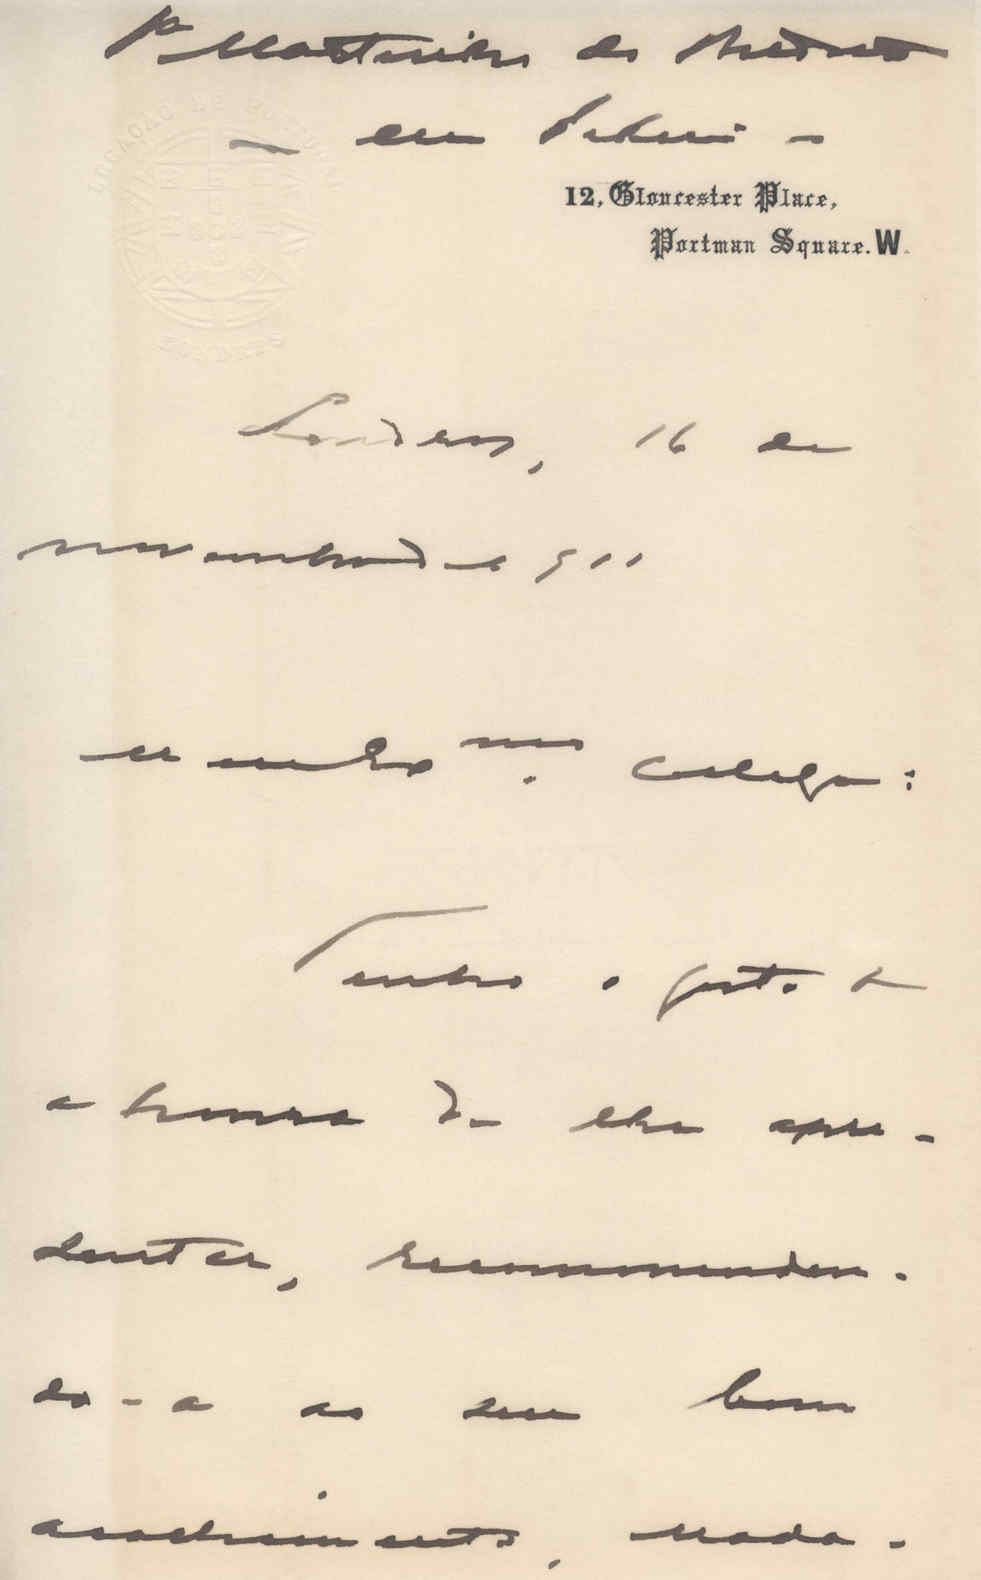 Pª Martinho de Brederode
— em Pekin —
LEGAÇÃO DE PORTUGAL
LONDRES
12, Gloucester Place,
Portman Square. W.
Londres, 16 de
novembro de 911
meu Exmo. collega:
Tenho o gosto e
a honra de lhe apre-
sentar, recommendan-
do-a ao seu bom
acolhimento, mada-